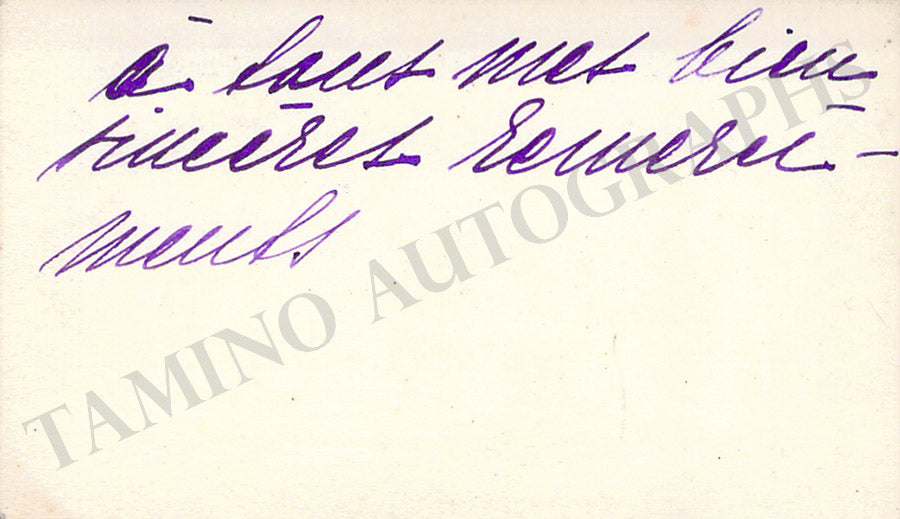 à tous mes bien
sincères remerci-
ments
TAMINO AUTOGRAPHS